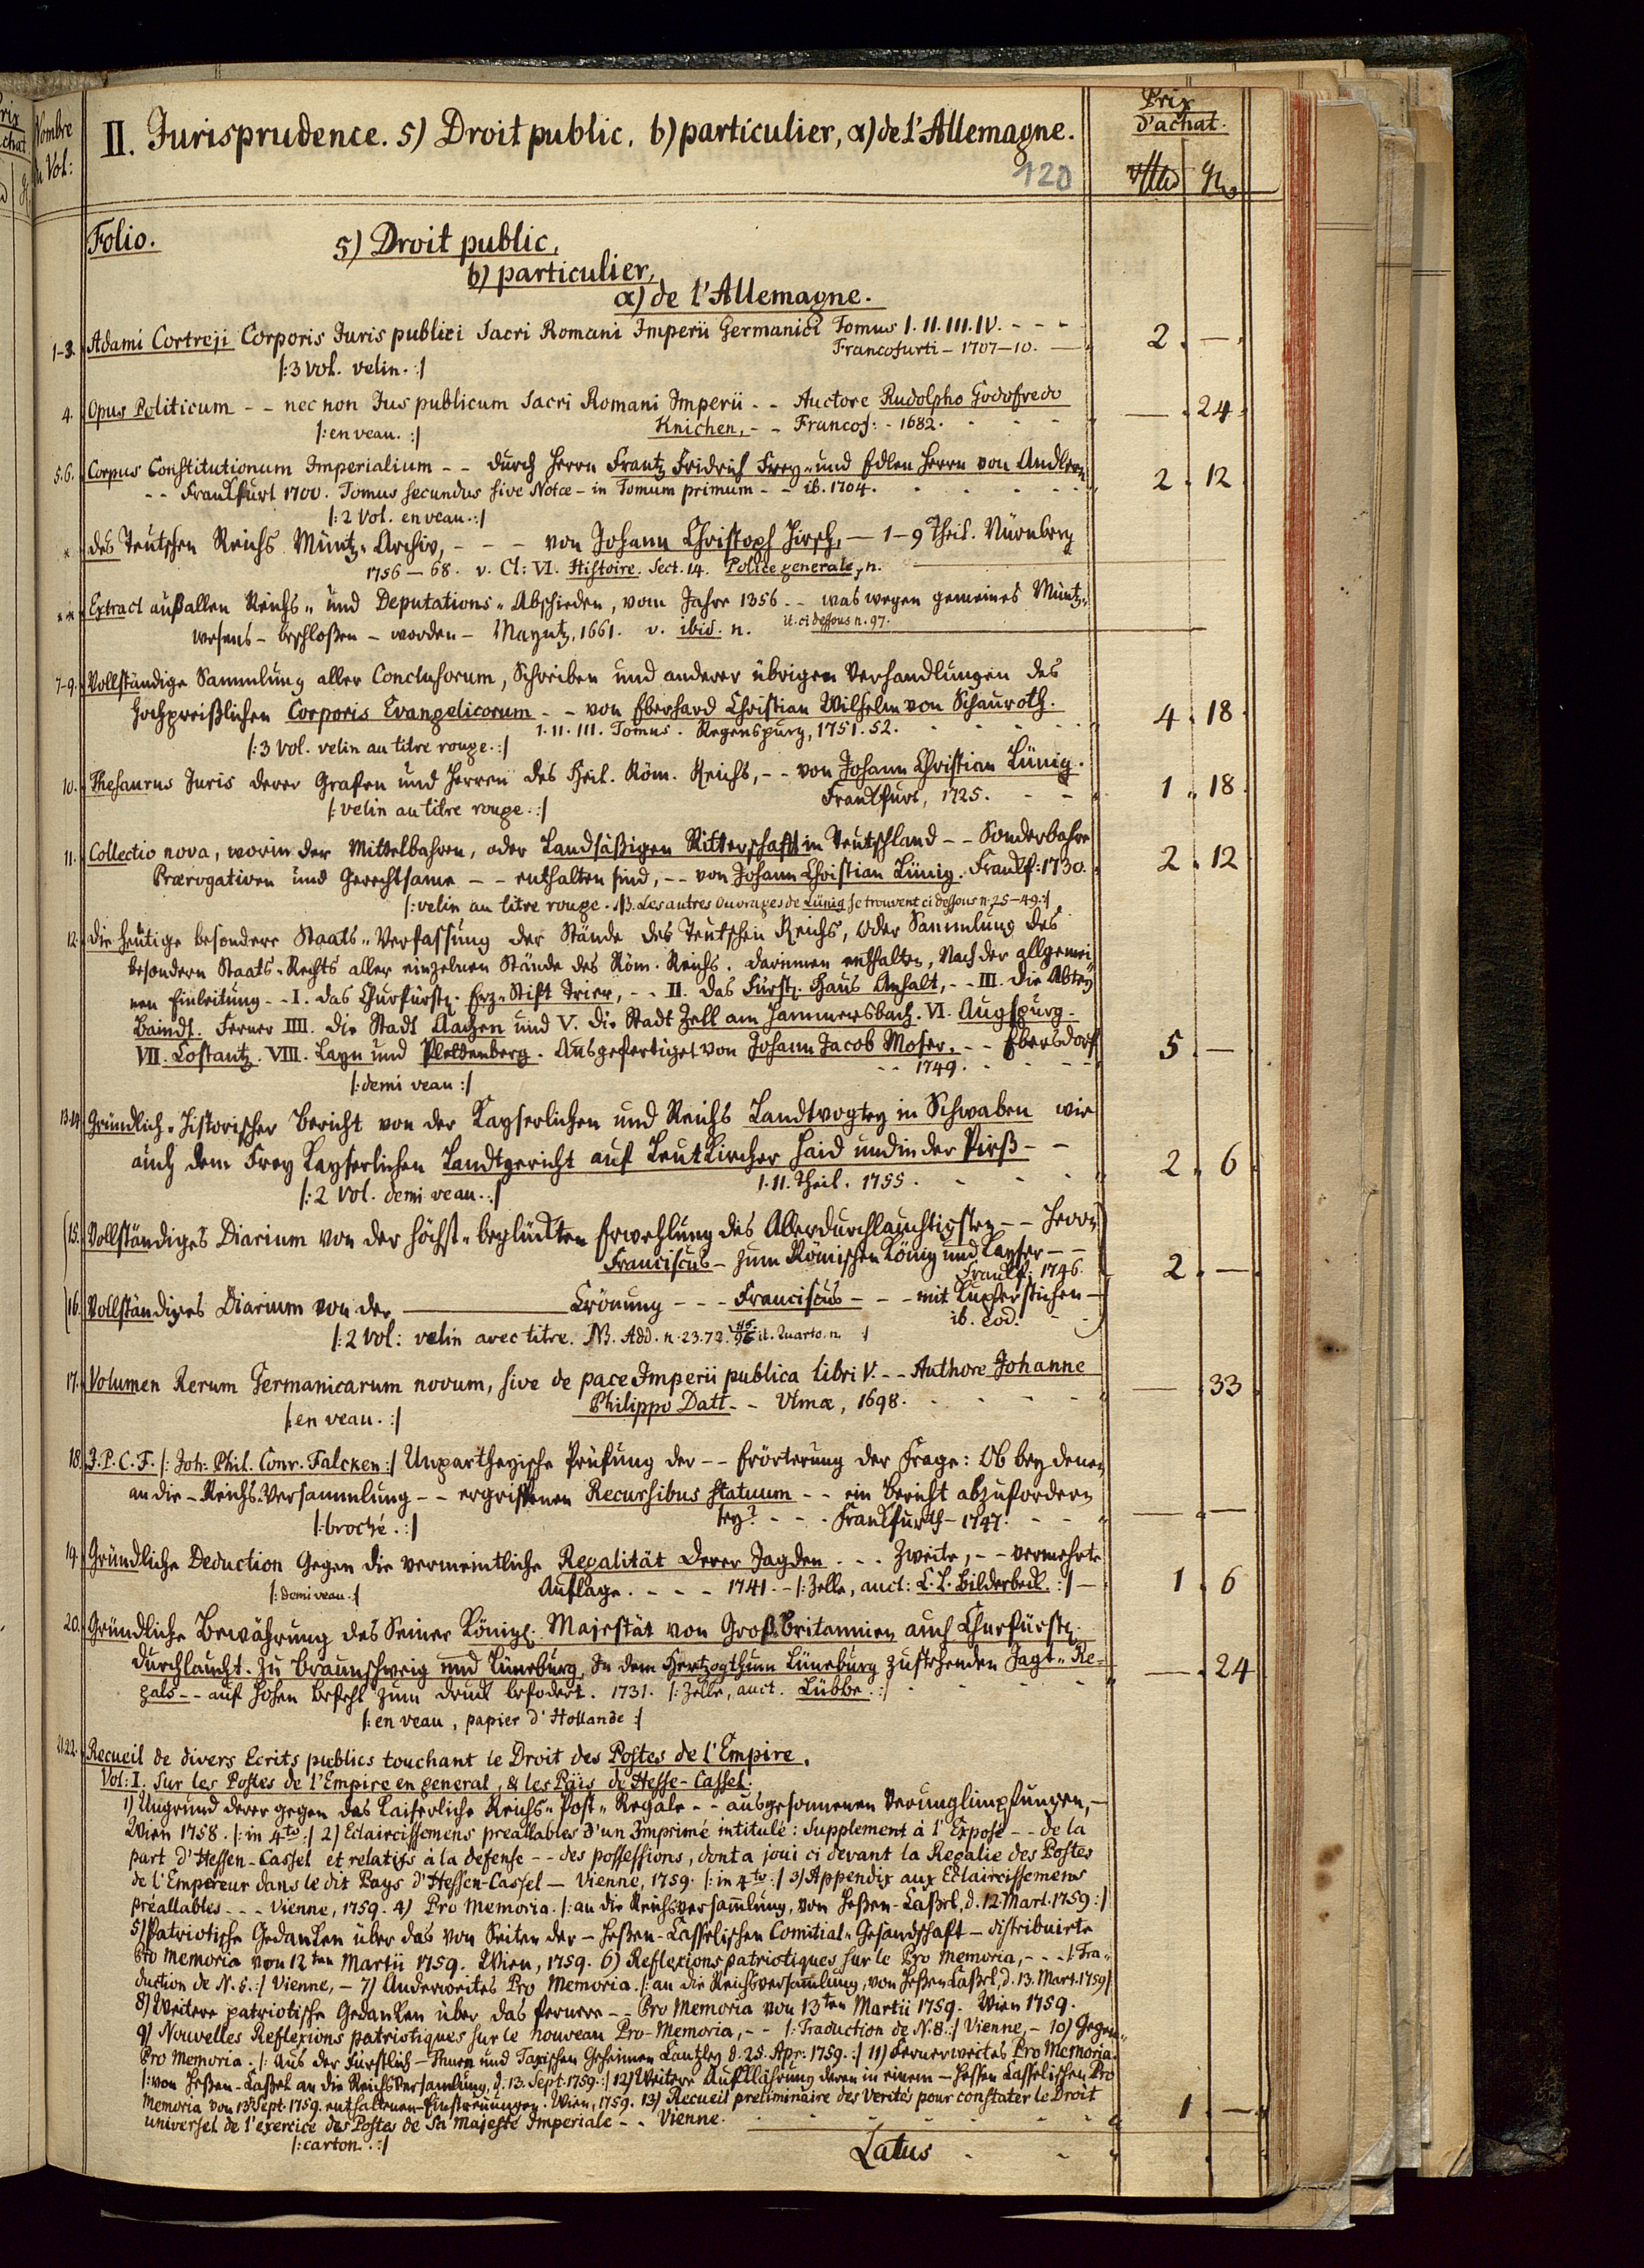 Nombre
du Vol:
II. Jurisprudence. 5) Droit public, b) particulier, α) de l'Allemagne.
120
Prix
d'achat.
Folio.
5) Droit public,
b) particulier,
α) de l'Allemagne.
1-3. Adami Cortreji Corporis Juris publici Sacri Romani Imperii Germanici Tomus I. II. III. IV. - - -
Francofurti - 1707-10. — 2. —.
/: 3 vol. velin. :/
4. Opus Politicum - - nec non Jus publicum Sacri Romani Imperii - - Auctore Rudolpho Godofredo
Knichen, - - Francof: - 1682. — . 24.
/: en veau. :/
5.6. Corpus Constitutionum Imperialium - - durch Herrn Frantz Fridrich Frey- und Edlen Herrn von Andlern
- - Franckfurt 1700. Tomus secundus sive Notæ - in Tomum primum - - ib. 1704. 2. 12.
/: 2 Vol. en veau. :/
* des Teutschen Reichs Müntz-Archiv, - - - von Johann Christoph Hirsch, — 1-9 Theil. Nürnberg
1756-68. v. Cl: VI. Histoire. Sect. 14. Police generale, n.
** Extract auß allen Reichs- und Deputations-Abschieden, vom Jahre 1356 - - was wegen gemeines Müntz-
wesens - beschloßen - worden - Mayntz, 1661. v. ibid. n. it. ci dessous n. 97.
7-9. Vollständige Sammlung aller Conclusorum, Schreiben und anderer übrigen Verhandlungen des
Hochpreißlichen Corporis Evangelicorum - - von Eberhard Christian Wilhelm von Schauroth.
I. II. III. Tomus. Regenspurg, 1751. 52. 4. 18.
/: 3 Vol. velin au titre rouge. :/
10. Thesaurus Juris derer Grafen und Herren des Heil. Röm. Reichs, - - von Johann Christian Lünig.
Franckfurt, 1725. - - 1. 18.
/: velin au titre rouge. :/
11. Collectio nova, worin der Mittelbahren, oder Landsäßigen Ritterschafft in Teutschland - - Sonderbahre
Prærogativen und Gerechtsame - - enthalten sind, - - von Johann Christian Lünig. Franckf: 1730. 2. 12
/: velin au titre rouge. NB. Les autres Ouvrages de Lünig se trouvent ci dessous n. 25-49. :/
12. die heutige besondere Staats-Verfassung der Stände des Teutschen Reichs, oder Sammlung des
besondern Staats-Rechts aller einzelnen Stände des Röm. Reichs. darinnen enthalten, Nach der allgemei-
nen Einleitung - - I. das Churfürstl. Erz-Stift Trier, - - II. das Fürstl. Haus Anhalt, - - III. die Abtey
Baindt. Ferner IIII. die Stadt Aachen und V. die Stadt Zell am Hammersbach. VI. Augspurg.
VII. Costantz. VIII. Layn und Plettenberg. Ausgefertiget von Johann Jacob Moser. - - Ebersdorf
- - 1749. 5. —.
/: demi veau :/
13.14. Gründlich-Historischer Bericht von der Kayserlichen und Reichs Landtvogtey in Schwaben wie
auch dem Frey Kayserlichen Landtgericht auf Leutkircher Haid und in der Pirß - -
I. II. Theil. 1755. 2. 6.
/: 2 Vol. demi veau. :/
15. Vollständiges Diarium von der höchst-beglückten Erwehlung des Allerdurchlauchtigsten - - Herrn
Franciscus - zum Römischen König und Kayser - -
Franckf: 1746. 2. —.
16. Vollständiges Diarium von der ——— Crönung - - - Franciscus - - - mit Kupferstichen —
ib. eod.
/: 2 Vol: velin avec titre. NB. Add. n. 23. 72. 96. it. Quarto. n. :/
17. Volumen Rerum Germanicarum novum, sive de pace Imperii publica libri V. - - Authore Johanne
Philippo Datt - - Ulmæ, 1698. — . 33
/: en veau. :/
18. J. P. C. F. /: Joh: Phil. Conr. Falcken :/ Unpartheyische Prüfung der - - Erörterung der Frage: Ob bey denen
an die - Reichs-Versammlung - - ergriffenen Recursibus statuum - - ein Bericht abzufordern
sey? - - - Franckfurth - 1747. — . —
/: broché. :/
19. Gründliche Deduction Gegen die vermeintliche Regalität Derer Jagden - - - Zweite, - - vermehrte
Auflage. - - - 1741. - /: Zelle, auct: C. L. Bilderbeck. :/ — 1. 6
/: demi veau. :/
20. Gründliche Bewährung des Seiner Königl. Majestät von Groß-Britannien auch Churfürstl.
Durchlaucht. zu Braunschweig und Lüneburg, In dem Hertzogthum Lüneburg zustehenden Jagt-Re-
gals - - auf hohen Befehl zum druck befodert. 1731. /: Zelle, auct. Lübbe. :/ — . 24
/: en veau, papier d'Hollande :/
21.22. Recueil de divers Ecrits publics touchant le Droit des Postes de l'Empire.
Vol: I. Sur les Postes de l'Empire en general, & les Païs de Hesse-Cassel.
1) Ungrund derer gegen das Kaiserliche Reichs-Post-Regale - - ausgesonnenen Verunglimpfungen, —
Wien 1758. /: in 4to :/ 2) Eclaircissemens preallables d'un Imprimé intitulé: Supplement à l'Exposé - - de la
part d'Hessen-Cassel et relatifs à la defense - - des possessions, dont a joui ci devant la Regalie des Postes
de l'Empereur dans le dit Pays d'Hessen-Cassel — Vienne, 1759. /: in 4to :/ 3) Appendix aux Eclaircissemens
préallables - - - Vienne, 1759. 4) Pro Memoria. /: an die Reichsversamlung, von Heßen-Caßel, d. 12 Mart. 1759 :/
5) Patriotische Gedancken über das von Seiten der - Heßen-Casselischen Comitial-Gesandschaft - distribuirte
Pro Memoria vom 12ten Martii 1759. Wien, 1759. 6) Reflexions patriotiques sur le Pro Memoria, - - - /: Tra-
duction de N. 5. :/ Vienne, - 7) Anderweites Pro Memoria. /: an die Reichsversamlung, von Heßen Caßel, d. 13. Mart. 1759 :/
8) Weitere patriotische Gedancken über das fernere - - Pro Memoria von 13ten Martii 1759. Wien 1759.
9) Nouvelles Reflexions patriotiques sur le nouveau Pro-Memoria, - - /: Traduction de N. 8. :/ Vienne, - 10) Gegen-
Pro Memoria. /: Aus der Fürstlich-Thurn und Taxischen Geheimen Cantzley d. 25. Apr: 1759. :/ 11) Fernerweites Pro Memoria.
/: von Heßen-Caßel an die Reichsversamlung, d. 13. Sept. 1759. :/ 12) Weitere Aufklährung deren in einem - Hessen Casselischen Pro
Memoria von 13 Sept. 1759. enthaltenen Einstreuungen. Wien, 1759. 13) Recueil preliminaire des Verités pour constater le Droit
universel de l'exercice des Postes de Sa Majesté Imperiale - - Vienne. 1. —
/: carton. :/
Latus